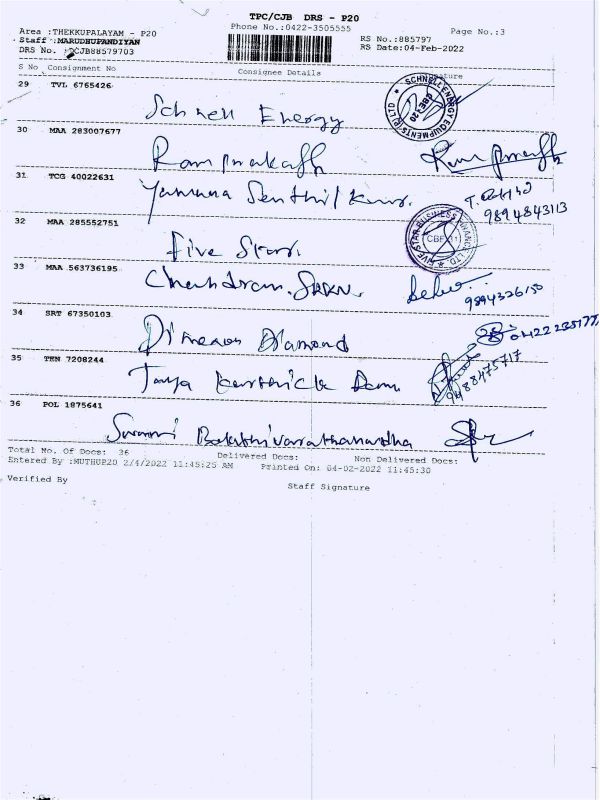 TPC/CJB DRS - P20
Phone No.:0422-3505555
Page No.:3
Area :THEKKUPALAYAM - P20
Staff :MARUDHUPANDIYAN
DRS No. :CJB88579703
RS No.:885797
RS Date:04-Feb-2022
S No Consignment No Consignee Details
29 TVL 6765426
Schnell Energy
SCHNELL ENERGY EQUIPMENTS (P) LTD
CBE 20
30 MAA 283007677
Ramprakash
31 TCG 40022631
Yamuna Senthil Kumar
9894843113
32 MAA 285552751
Five Star
FIVE STAR BUSINESS FINANCE LTD
CBE
33 MAA 563736195
Chandran
34 SRT 67350103
Diamond
35 TEN 7208244
Karthick
9488475717
36 POL 1875641
Swami
Total No. Of Docs: 36 Delivered Docs: Non Delivered Docs:
Entered By :MUTHUP20 2/4/2022 11:45:25 AM Printed On: 04-02-2022 11:45:30
Verified By
Staff Signature